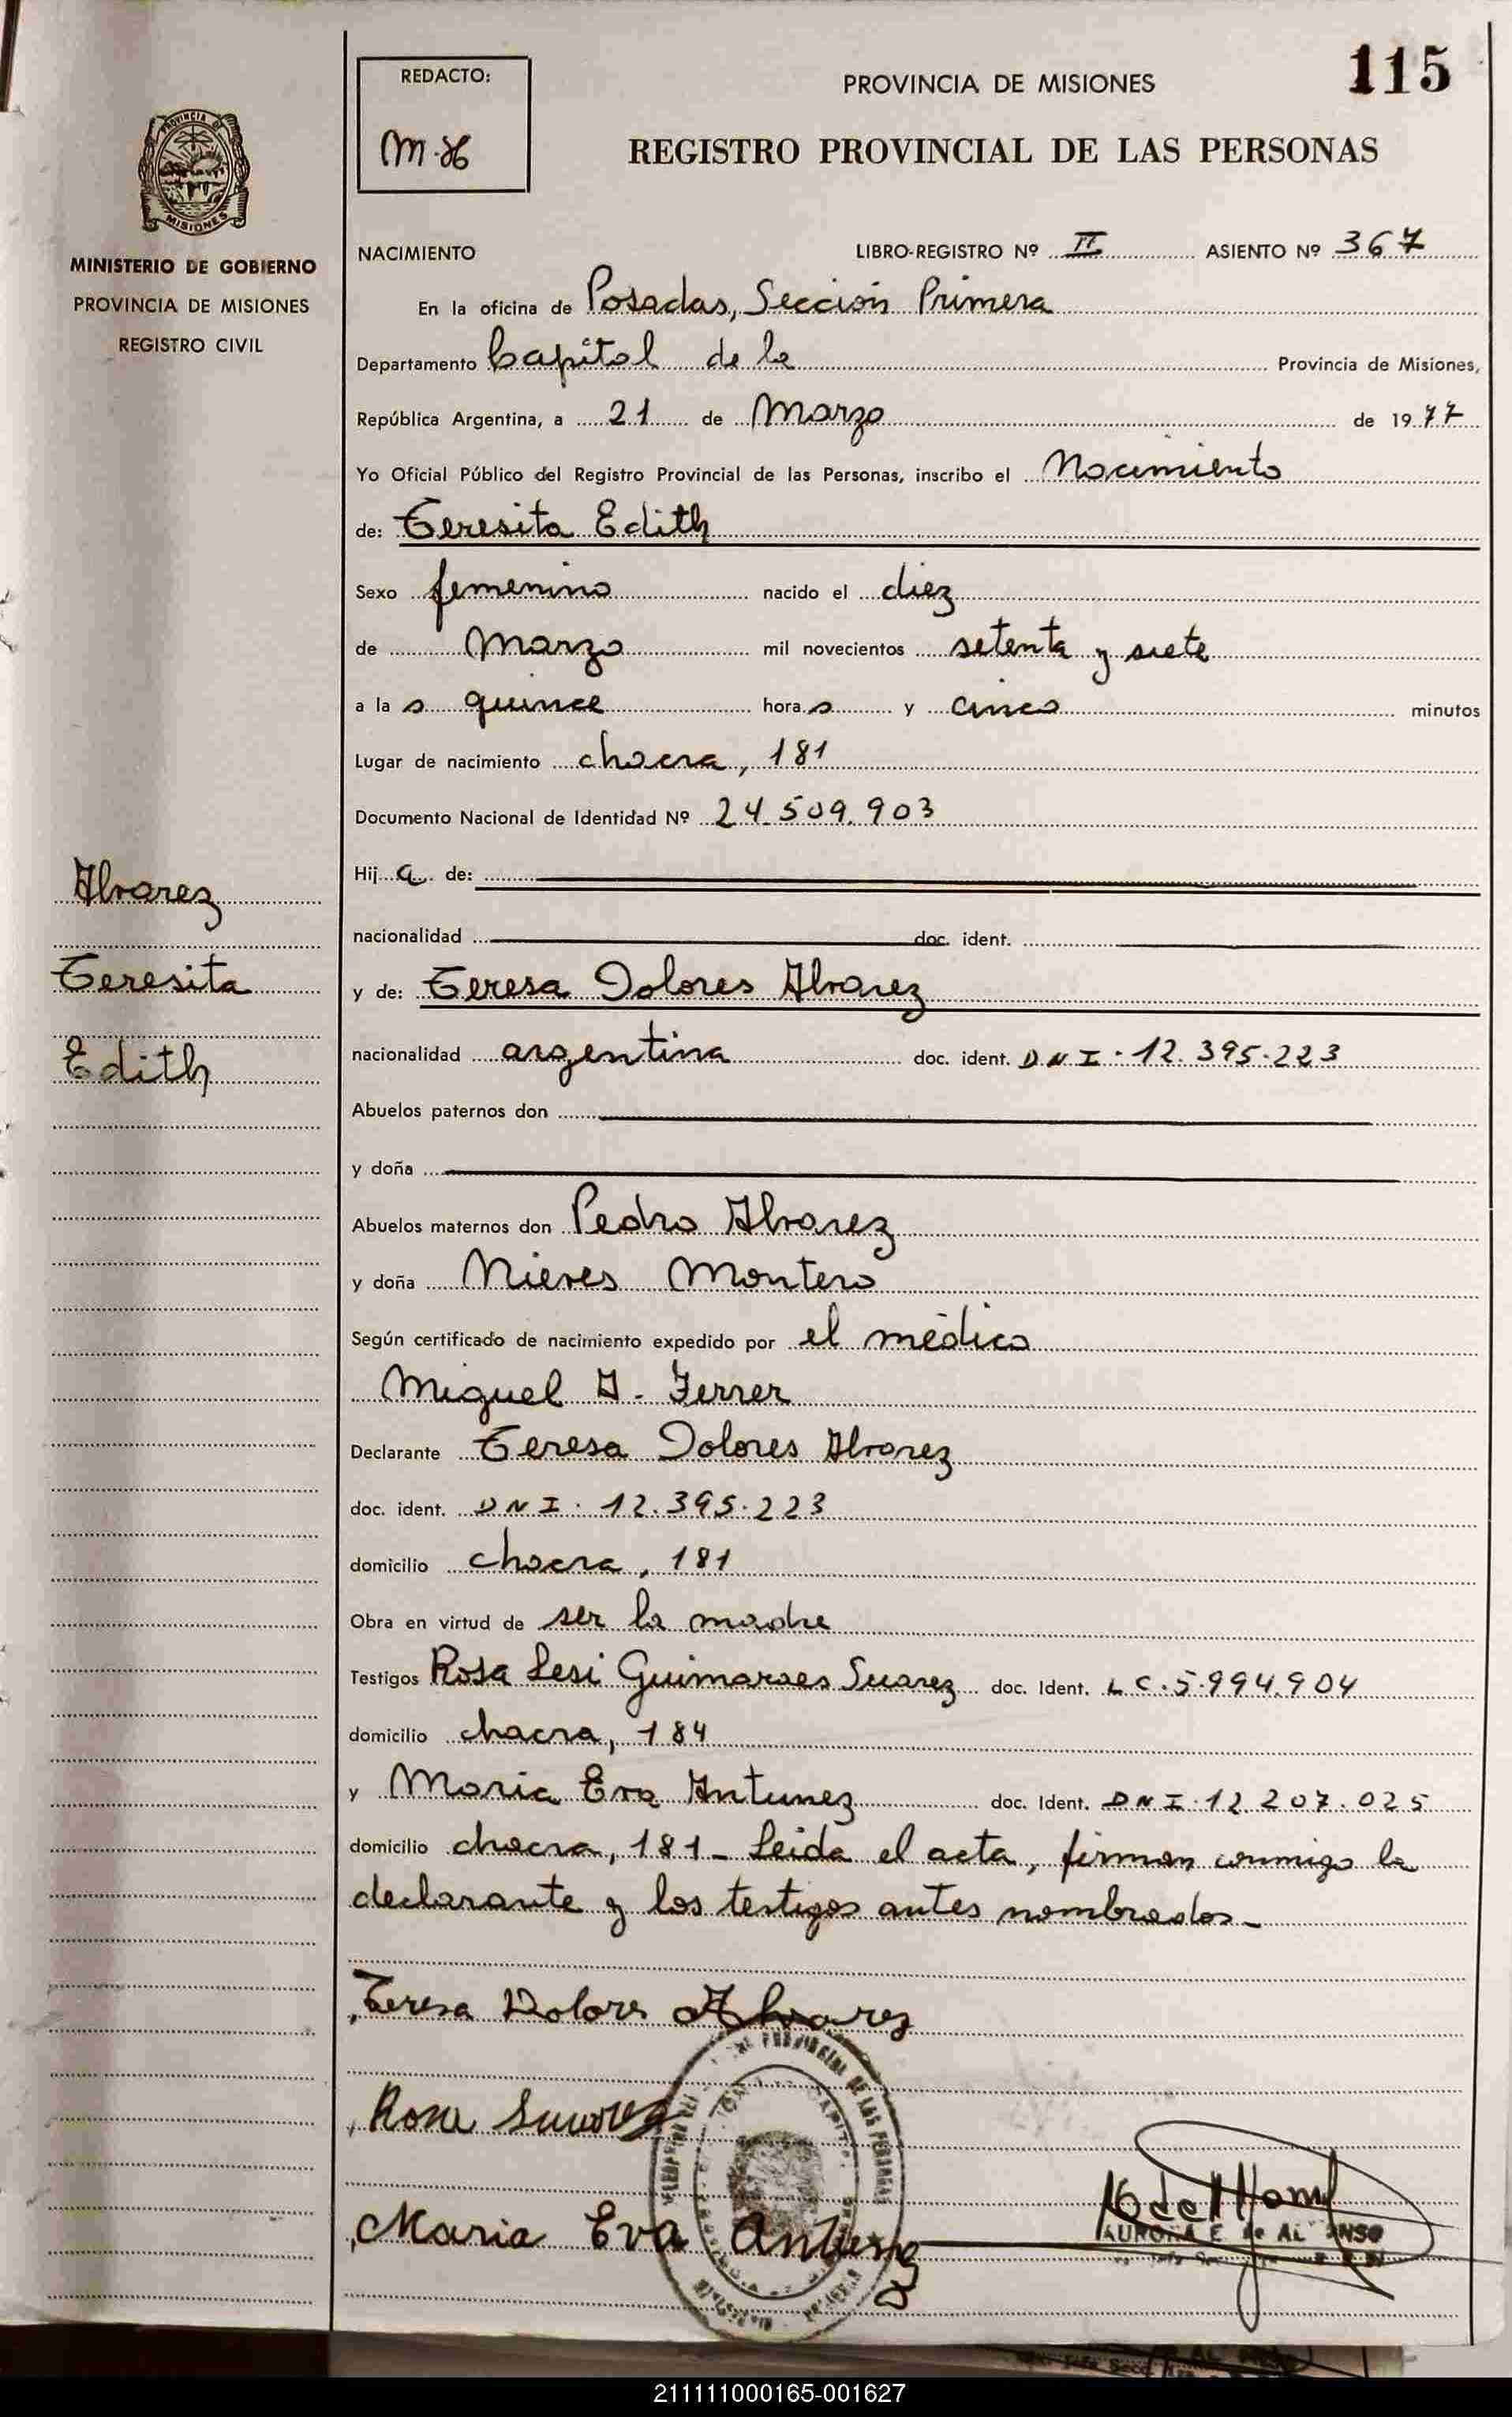 115
REDACTO:
PROVINCIA DE MISIONES
REGISTRO PROVINCIAL DE LAS PERSONAS
PROVINCIA DE
MISIONES
MINISTERIO DE GOBIERNO
PROVINCIA DE MISIONES
REGISTRO CIVIL
NACIMIENTO LIBRO-REGISTRO Nº II ASIENTO Nº 367
En la oficina de Posadas, Sección Primera
Departamento Capital de la Provincia de Misiones,
República Argentina, a 21 de Marzo de 1977
Yo Oficial Público del Registro Provincial de las Personas, inscribo el Nacimiento
de: Teresita Edith
Sexo femenino nacido el diez
de Marzo mil novecientos setenta y siete
a la s quince hora s y cinco minutos
Lugar de nacimiento chacra, 181
Documento Nacional de Identidad Nº 24.509.903
Hij a de:
Alvarez
nacionalidad doc. ident.
Teresita
y de: Teresa Dolores Alvarez
Edith
nacionalidad argentina doc. ident. DNI. 12.395.223
Abuelos paternos don
y doña
Abuelos maternos don Pedro Alvarez
y doña Nieves Montero
Según certificado de nacimiento expedido por el médico
Miguel A. Ferrer
Declarante Teresa Dolores Alvarez
doc. ident. DNI. 12.395.223
domicilio chacra, 181
Obra en virtud de ser la madre
Testigos Rosa Lesi Guimaraes Suarez doc. Ident. LC. 5.994.904
domicilio chacra, 184
y Maria Eva Antunez doc. Ident. DNI. 12.207.025
domicilio chacra, 181_ Leida el acta, firman conmigo la
declarante y los testigos antes nombrados_
Teresa Dolores Alvarez
Rosa Suarez
Maria Eva Antunez
AURORA E. de ALONSO
211111000165-001627